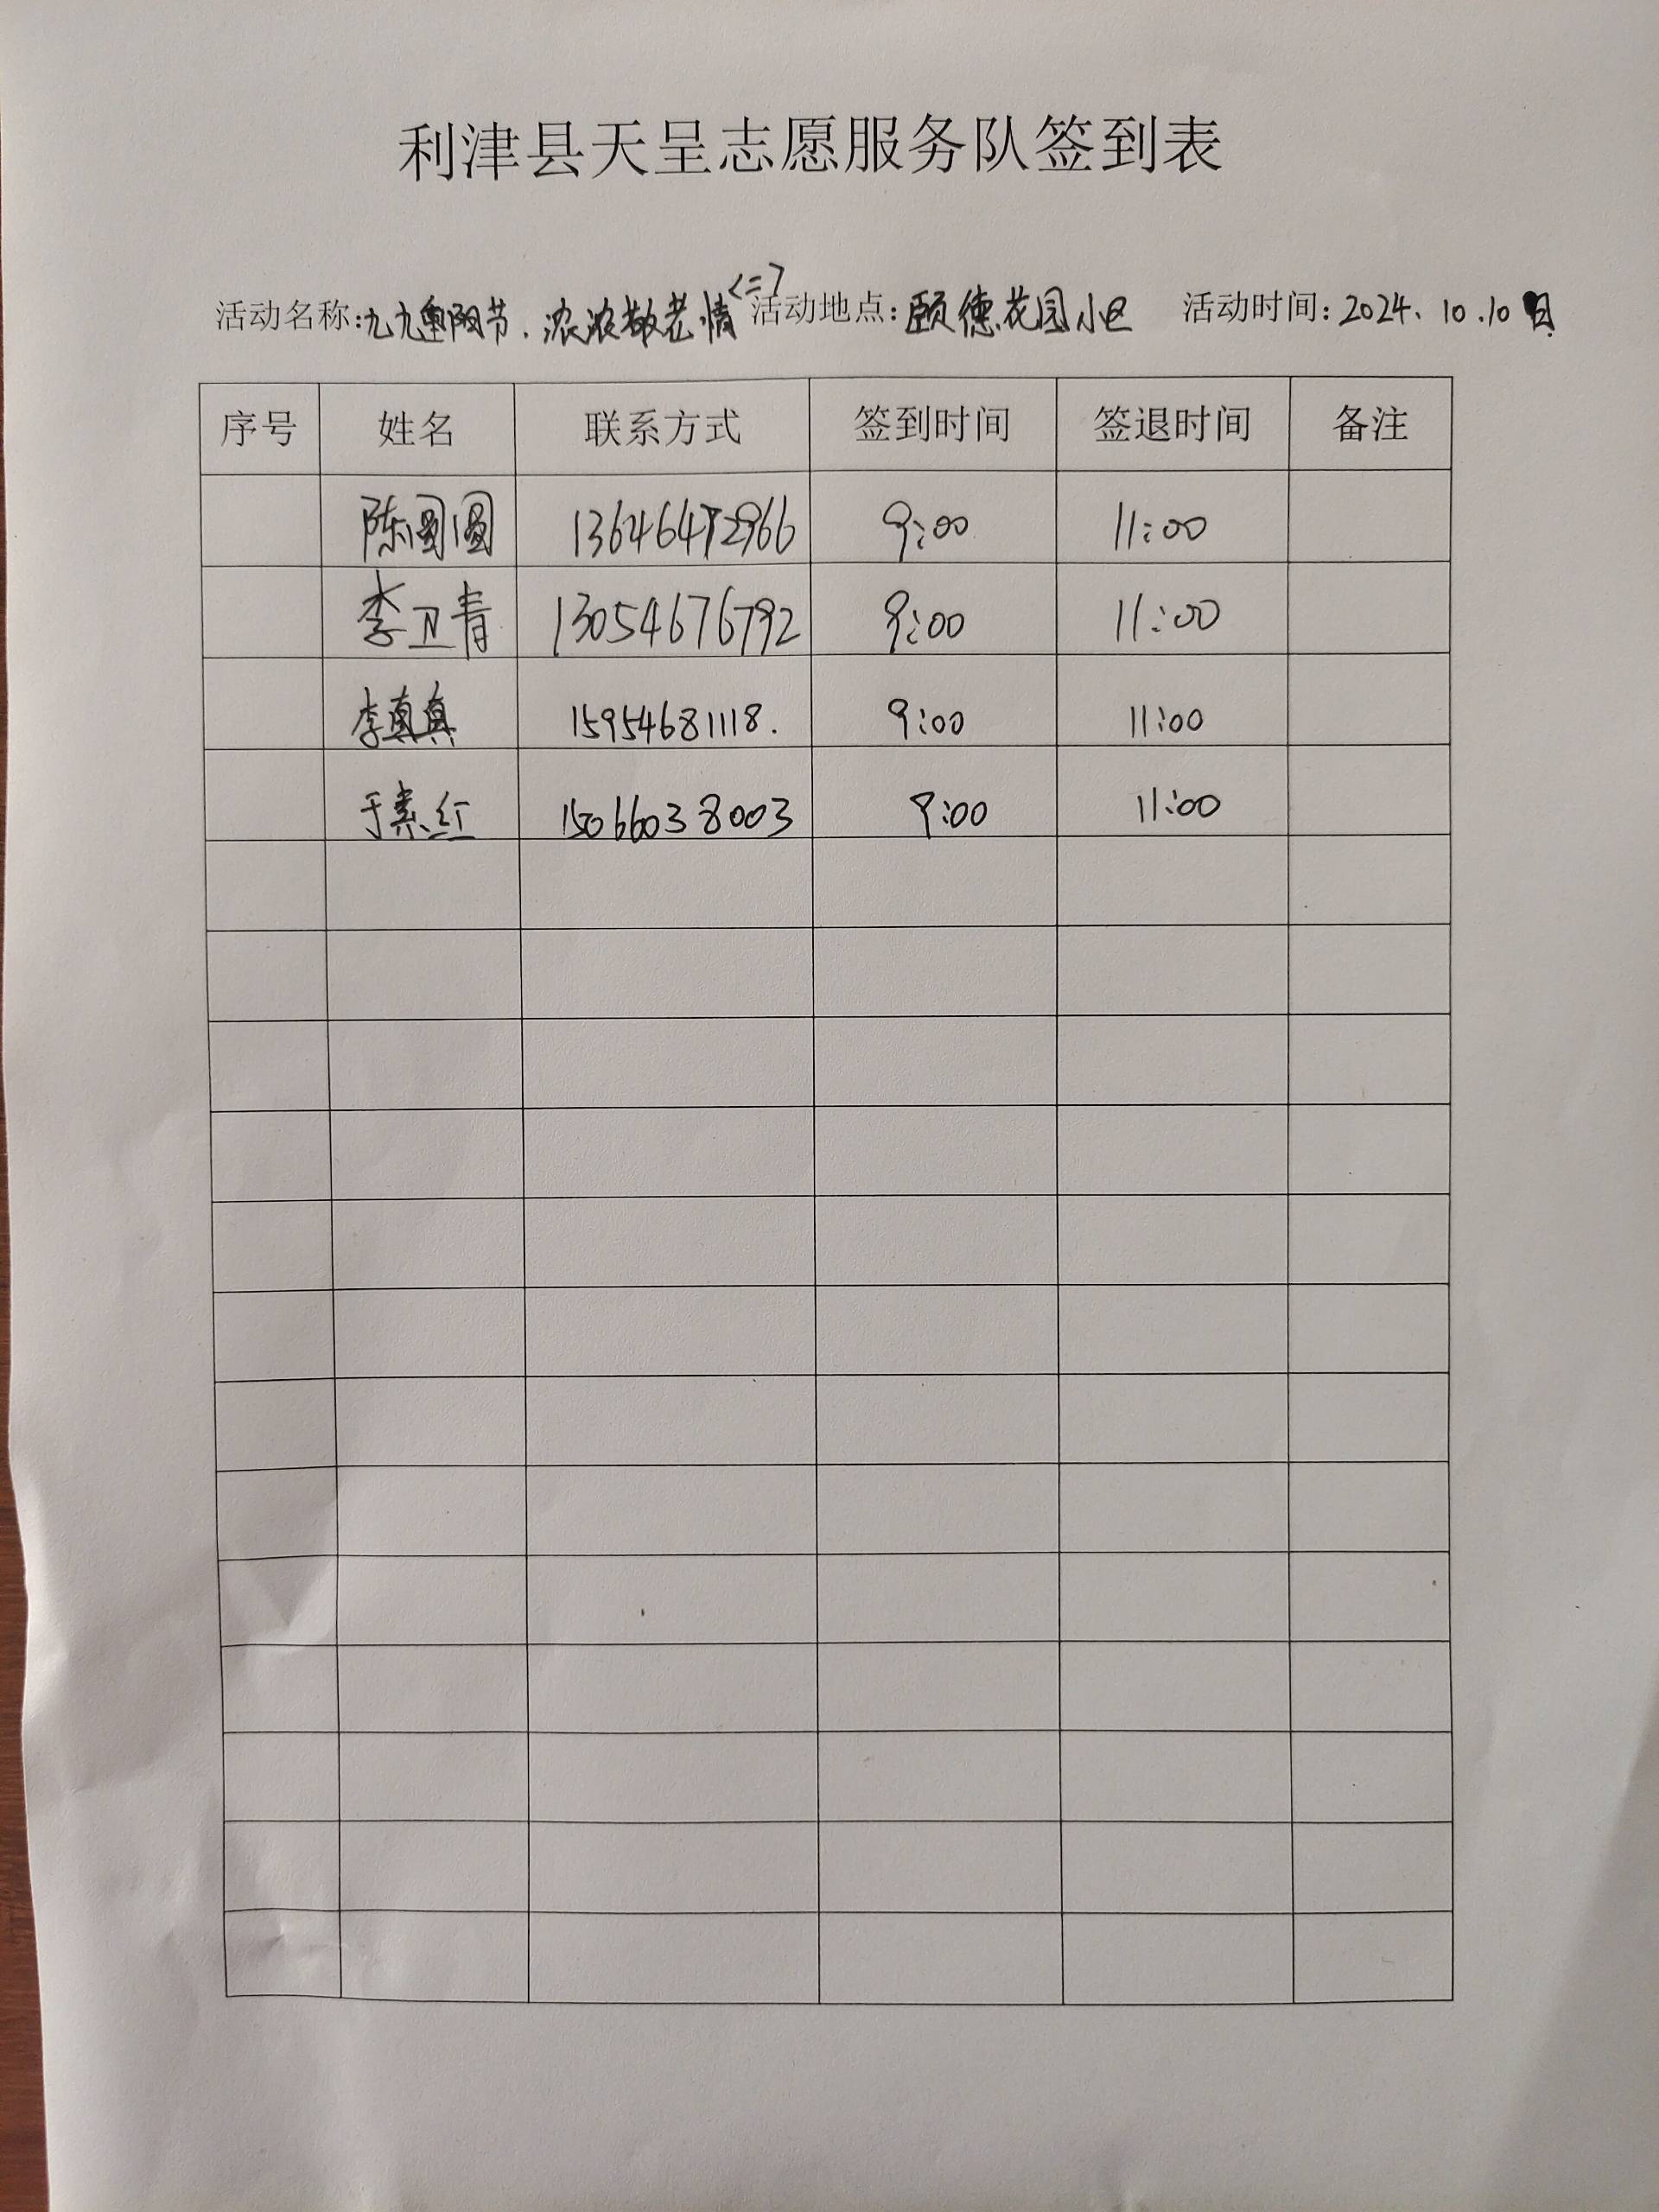 利津县天呈志愿服务队签到表
活动名称:九九重阳节.浓浓敬老情<二> 活动地点:颐德花园小区 活动时间:2024.10.10日
序号 姓名 联系方式 签到时间 签退时间 备注
陈圆圆 9:00 11:00
李卫青 13054676792 9:00 11:00
李真真 15954681118. 9:00 11:00
于素红 15066038003 9:00 11:00